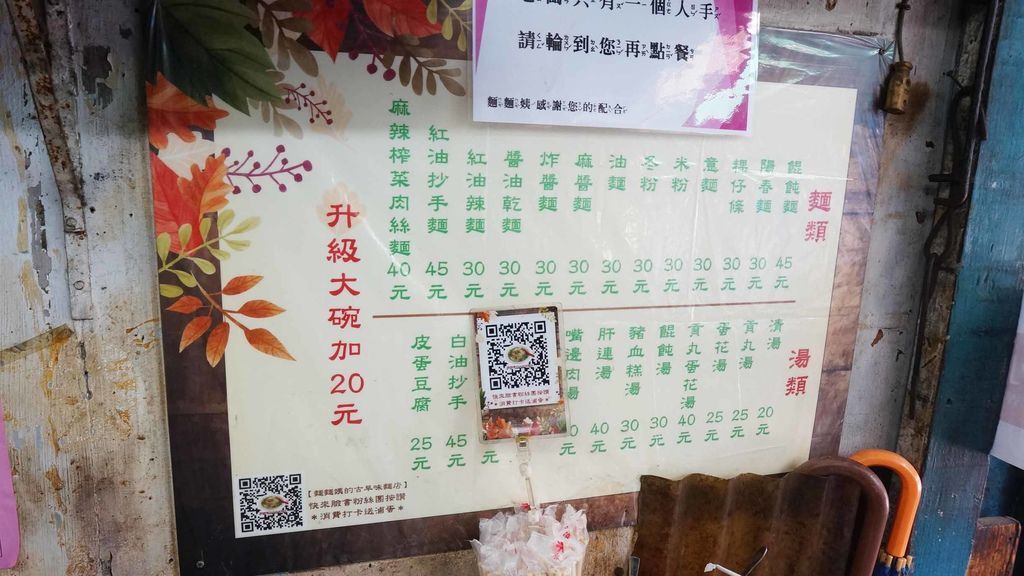 請輪到您再點餐
麵麵姨感謝您的配合
麵類
餛飩麵 45元
陽春麵 30元
粿仔條 30元
意麵 30元
米粉 30元
冬粉 30元
油麵 30元
麻醬麵 30元
炸醬麵 30元
醬油乾麵 30元
紅油辣麵 30元
紅油抄手麵 45元
麻辣榨菜肉絲麵 40元
湯類
清湯 20元
貢丸湯 25元
蛋花湯 25元
貢丸蛋花湯 40元
餛飩湯 30元
豬血糕湯 30元
肝連湯 40元
嘴邊肉湯 0元
元
白油抄手 45元
皮蛋豆腐 25元
升級大碗加20元
快來臉書粉絲團按讚
*消費打卡送滷蛋*
【麵麵姨的古早味麵店】
快來臉書粉絲團按讚
*消費打卡送滷蛋*